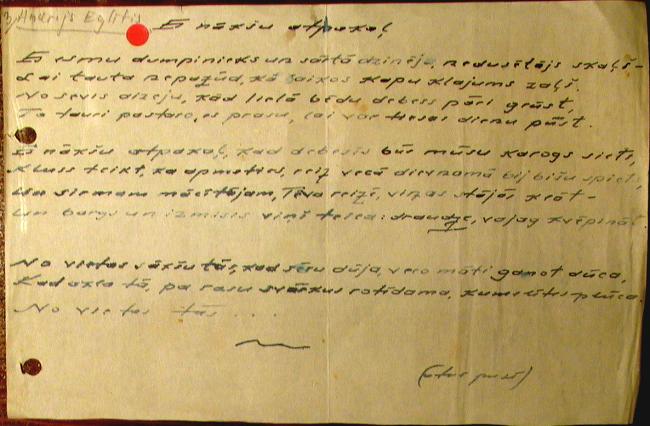 3, Andrejs Eglitis
Es nākšu atpakaļ
Es esmu dumpinieks un sārtā dzinējs, nedusētājs skaļš –
Lai tauta nepazūd, kā kapu klajums zaļš.
No sevis aizeju, kad lielā bēdu debess pāri grūst,
To tauri pastaro, es prasu, lai var tiesas dienu pūst.
Es nākšu atpakaļ, kad debesīs būs mūsu karogs siets,
Kluss teikt, ka apmeties, reiz vecā dievnamā bij bišu spiets,
Un sirmam mācītājam, Tēva reizē, viņas stājās krāt –
Un bargs un izmisis viņš teica: draudze, vajag kvēpināt
No vietas sākšu tās, kad sēru dūja, veco māti gana dūca,
Kad tā, pa rasu svārkus rotīdama, kumelītes plūca.
No vietas tās . . .